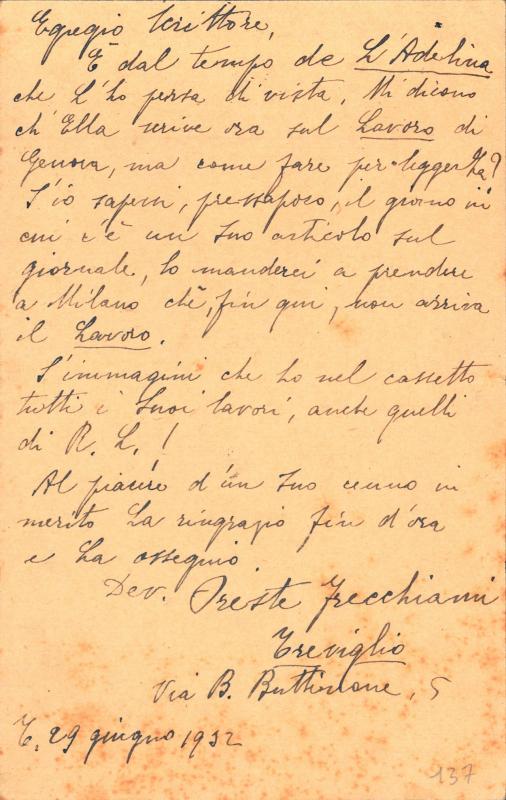 Egregio Scrittore,
È dal tempo de L'Adelina
che L'ho persa di vista. Mi dicono
ch'Ella scrive ora sul Lavoro di
Genova, ma come fare per leggerLa?
S'io sapessi, pressapoco, il giorno in
cui c'è un Suo articolo sul
giornale, lo manderei a prendere
a Milano chè, fin qui, non arriva
il Lavoro.
S'immagini che ho nel cassetto
tutti i Suoi lavori, anche quelli
di R. L.!
Al piacere d'un Suo cenno in
merito La ringrazio fin d'ora
e La ossequio.
Dev. Oreste Frecchiami
Treviglio
Via B. Buttinone, 5
T. 29 giugno 1932
137